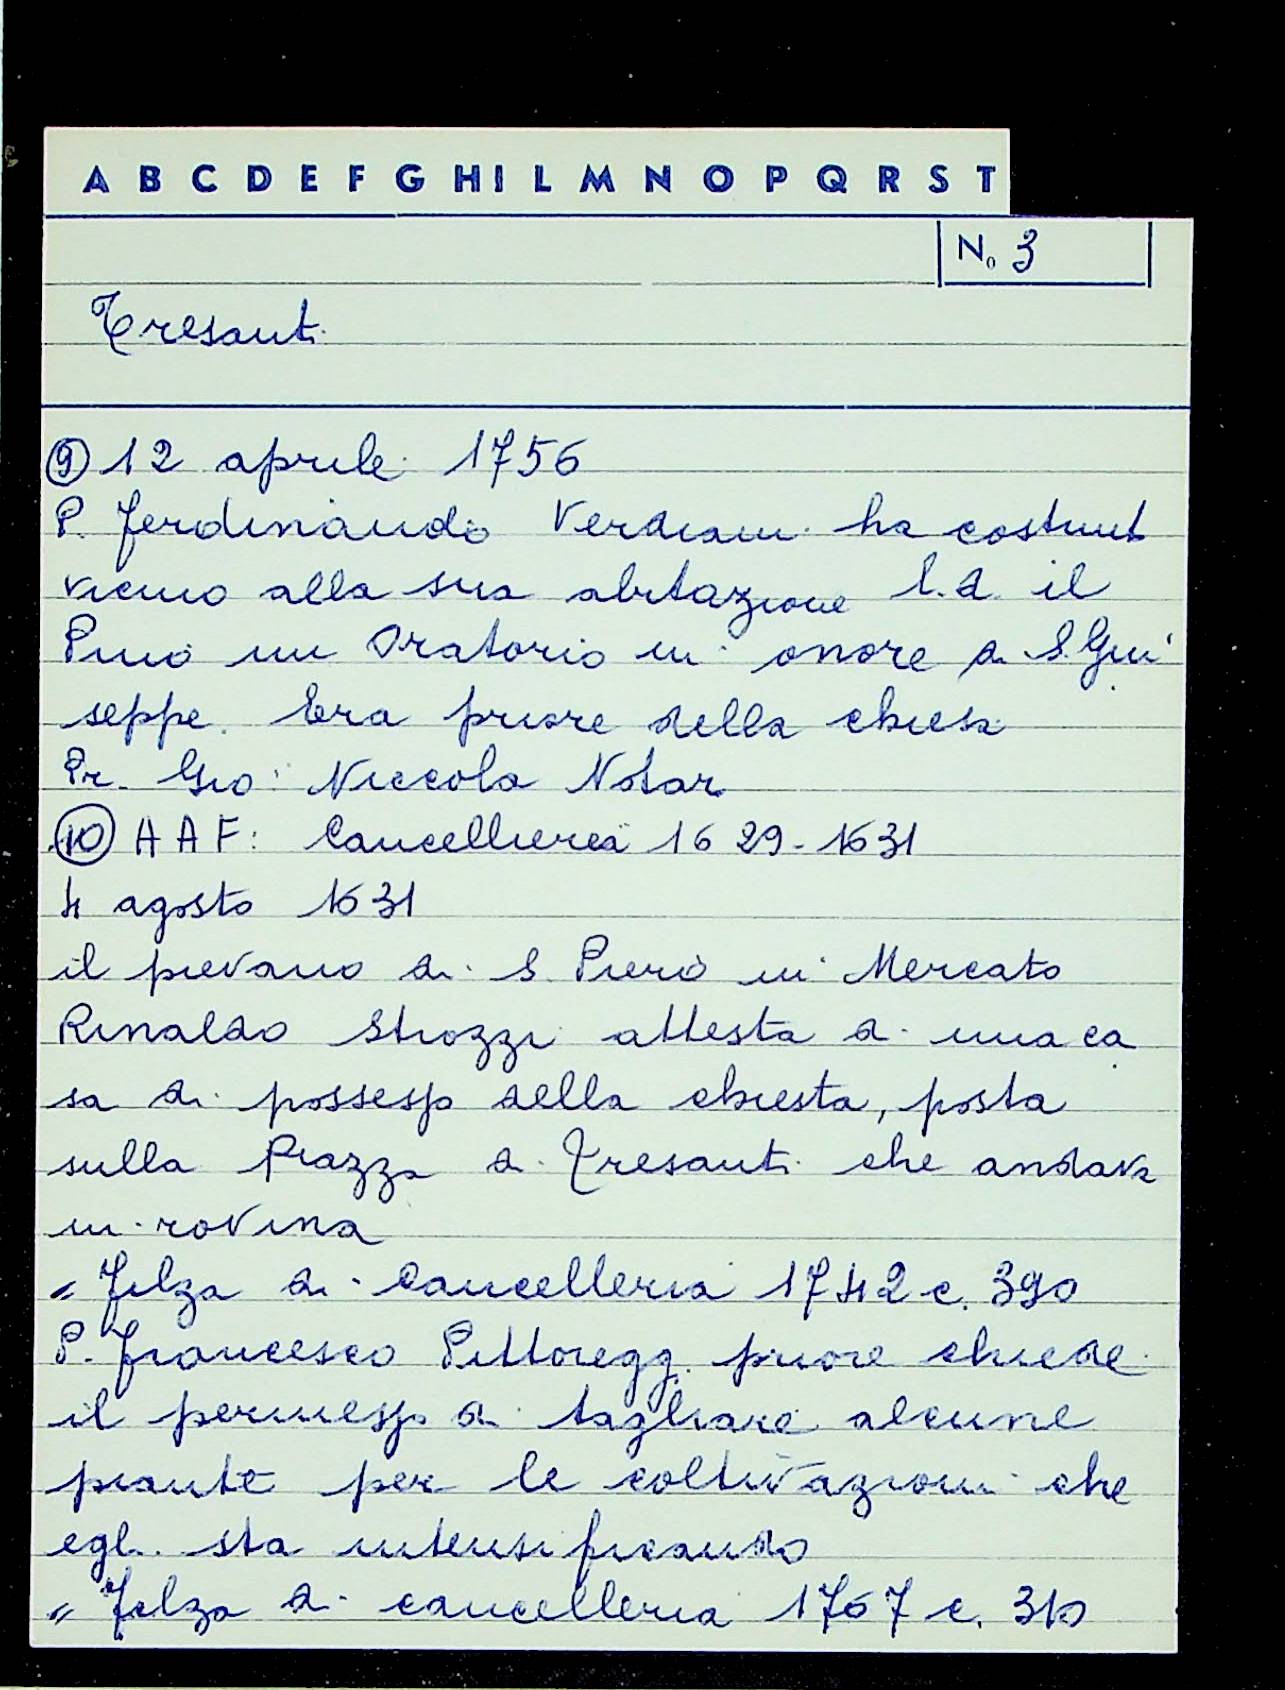 A B C D E F G H I L M N O P Q R S T
N. 3
Tresanti
9) 12 aprile 1756
P. Ferdinando Verdiani ha costruit
vicino alla sua abitazione l.d. il
Pino un oratorio in onore di S. Giu
seppe. Era priore della chiesa
Pr. Gio: Niccola Notari
10) A A F: Cancelleria 1629-1631
4 agosto 1631
il pievano di S. Piero in Mercato
Rinaldo Strozzi attesta di una ca
sa di possesso della chiesta, posta
sulla Piazza di Tresanti che andava
in rovina
" Filza di cancelleria 1742 c. 390
P. Francesco Pittoreggi priore chiede
il permesso di tagliare alcune
piante per le coltivazioni che
egli sta intensificando
" Filza di cancelleria 1767 c. 310